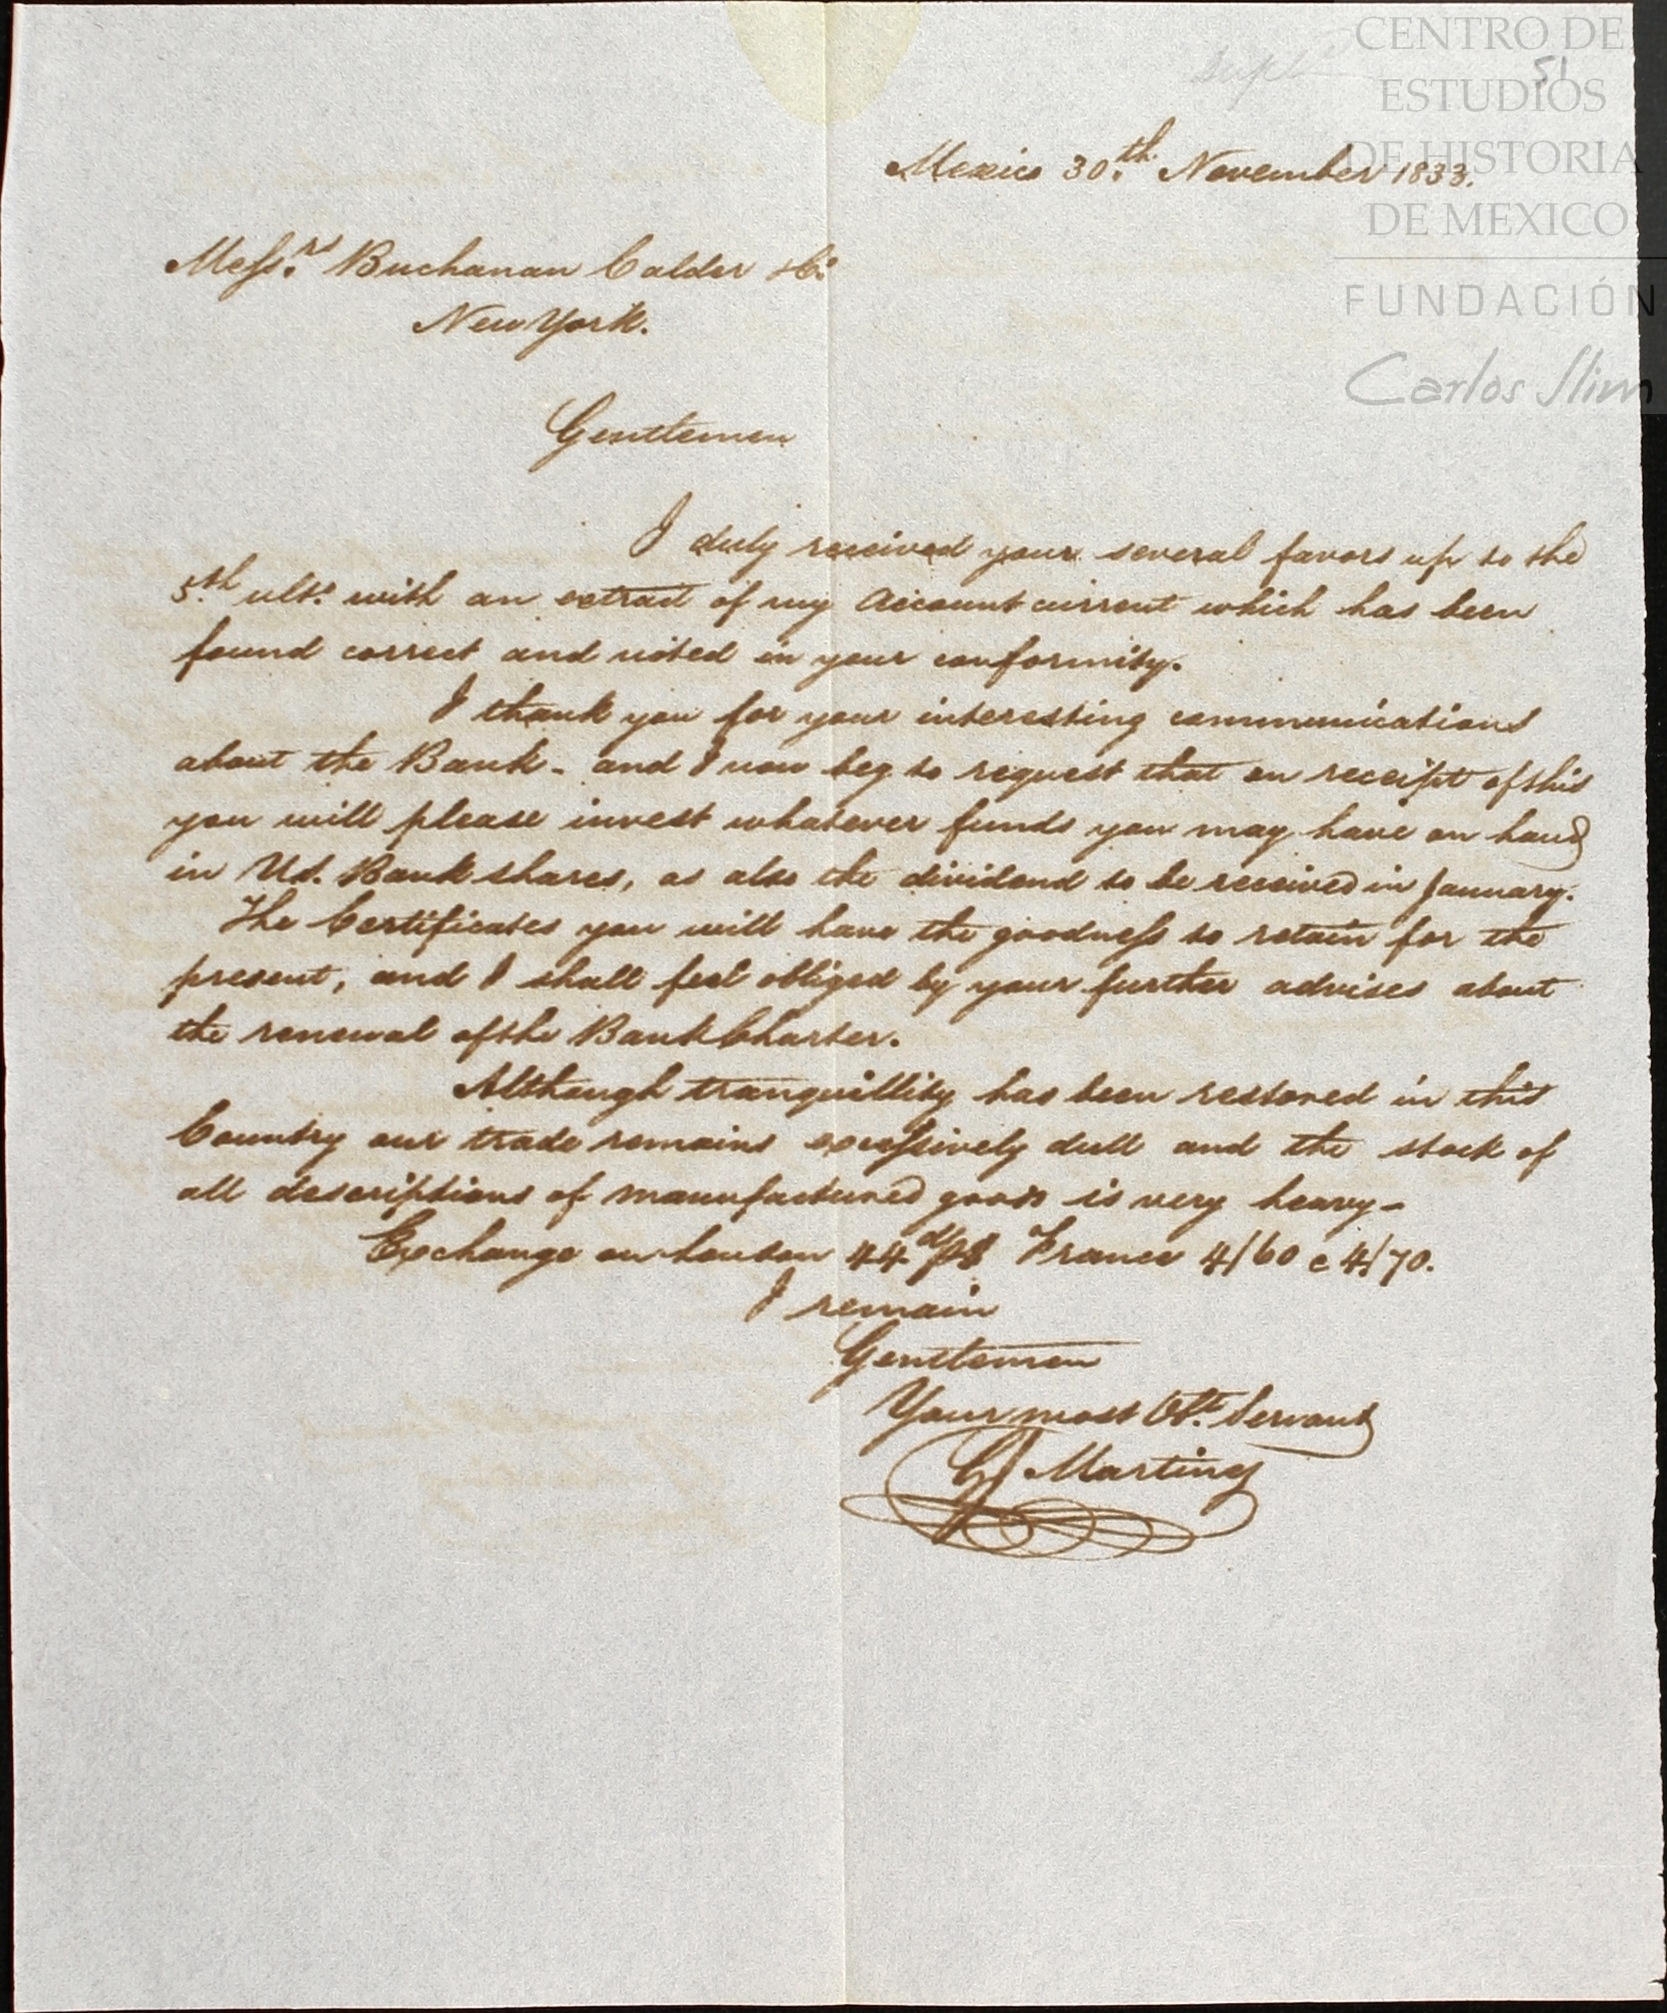 CENTRO DE
ESTUDIOS
DE HISTORIA
DE MEXICO
FUNDACIÓN
Carlos Slim
51
Mexico 30th. November 1833.
Messrs. Buchanan Calder & Co.
New York.
Gentlemen
I duly received your several favors up to the
5th. ulto. with an extract of my Account current which has been
found correct and noted in your conformity.
I thank you for your interesting communications
about the Bank - and I now beg to request that on receipt of this
you will please invest whatever funds you may have on hand
in Ud. Bank shares, as also the dividend to be received in January.
The Certificates you will have the goodness to retain for the
present, and I shall feel obliged by your further advises about
the renewal of the Bank Charter.
Although tranquillity has been restored in this
Country our trade remains excessively dull and the stock of
all descriptions of manufactured goods is very heavy -
Exchange on London 44d France 4/60 c 4/70.
I remain
Gentlemen
Your most Obt. Servant
Martinez